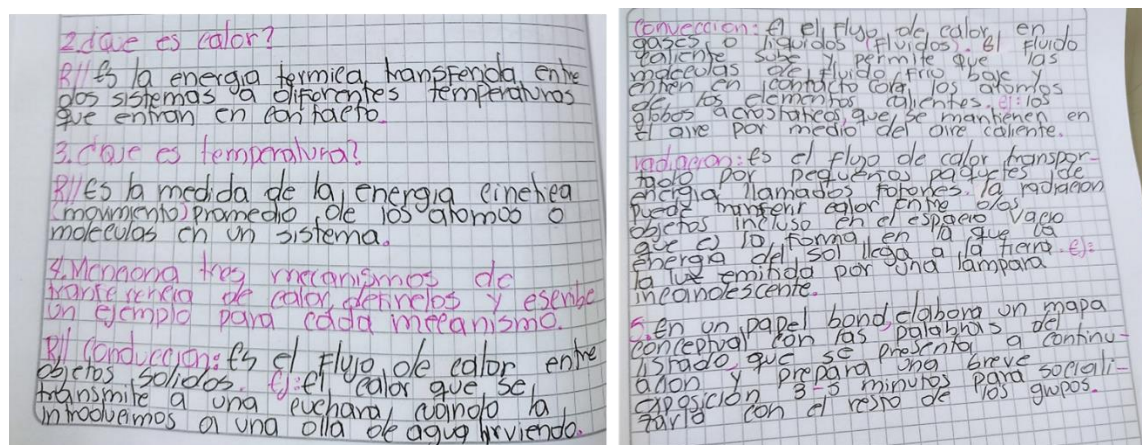 2.¿que es calor?
R// Es la energia termica transferida entre
dos sistemas a diferentes temperaturas
que entran en contacto.
3.¿que es temperatura?
R// Es la medida de la energia cinetica
(movimiento) promedio de los atomos o
moleculas en un sistema.
4.Menciona tres mecanismos de
transferencia de calor, definelos y escribe
un ejemplo para cada mecanismo.
R// conduccion: Es el flujo de calor entre
objetos solidos. Ej: el calor que se
transmite a una cuchara cuando la
introducimos a una olla de agua hirviendo.
conveccion: Es el flujo de calor en
gases o liquidos (fluidos). El fluido
caliente sube y permite que las
moleculas de fluido frio baje y
entren en contacto con los atomos
de los elementos calientes. ej: los
globos acrostaticos, que se mantienen en
el aire por medio del aire caliente.
radiacion: Es el flujo de calor transpor-
tado por pequeños paquetes de
energia llamados fotones. la radiacion
puede transferir calor entre dos
objetos incluso en el espacio vacio
que es la forma en la que la
energia del sol llega a la tierra. ej:
la luz emitida por una lampara
incandescente.
5. En un papel bond, elabora un mapa
conceptual con las palabras del
listado que se presenta a continu-
acion y prepara una breve
exposición 3-5 minutos para sociali-
zarlo con el resto de los grupos.